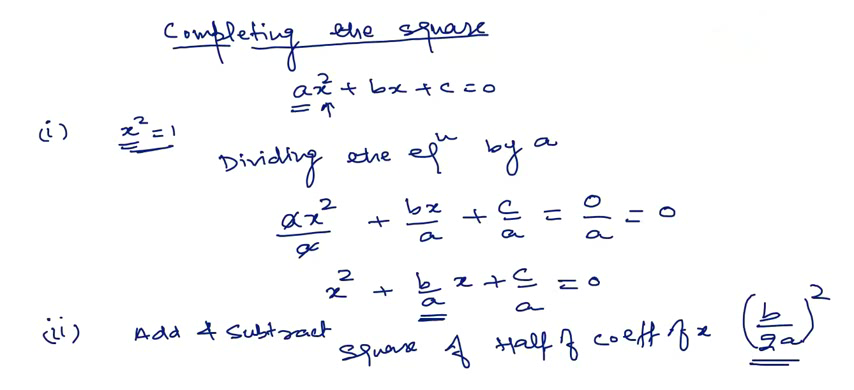 Completing the square
ax² + bx + c = 0
(i) x² = 1
Dividing the eqⁿ by a
ax²/a + bx/a + c/a = 0/a = 0
x² + b/a x + c/a = 0
(ii) Add & Subtract square of Half of coeff of x (b/2a)²